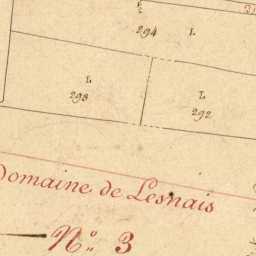 294 L
L
298
L
292
Domaine de Lesnais
N.º 3